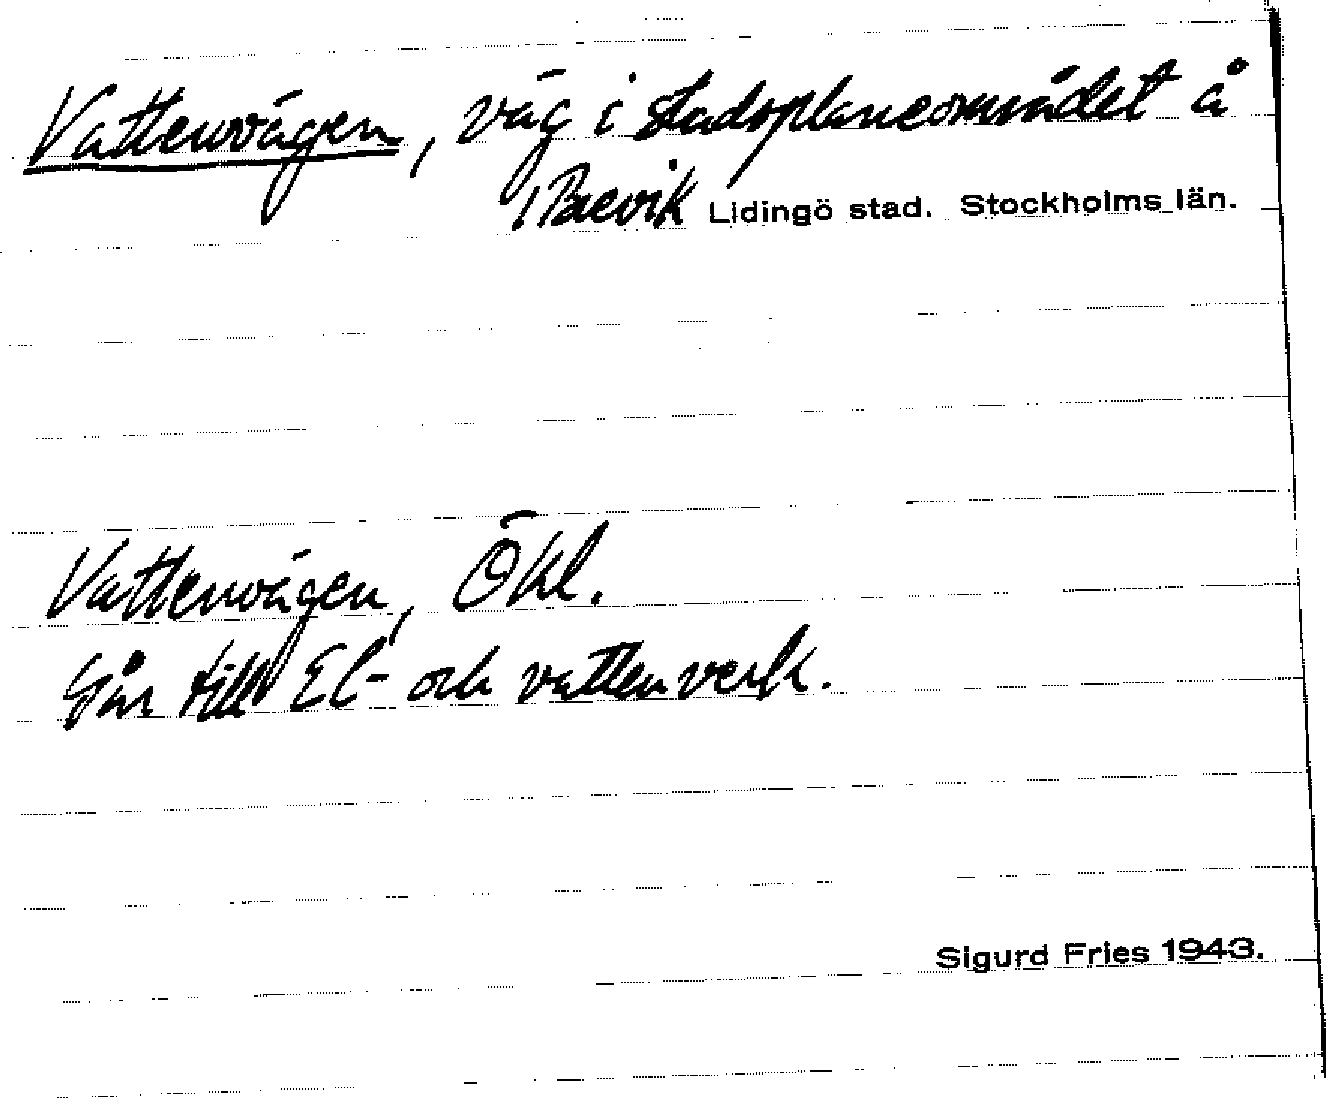 Vattenvägen, väg i stadsplaneområdet å
Brevik Lidingö stad. Stockholms län.
Vattenvägen, Ökl.
Går till El- och vattenverk.
Sigurd Fries 1943.